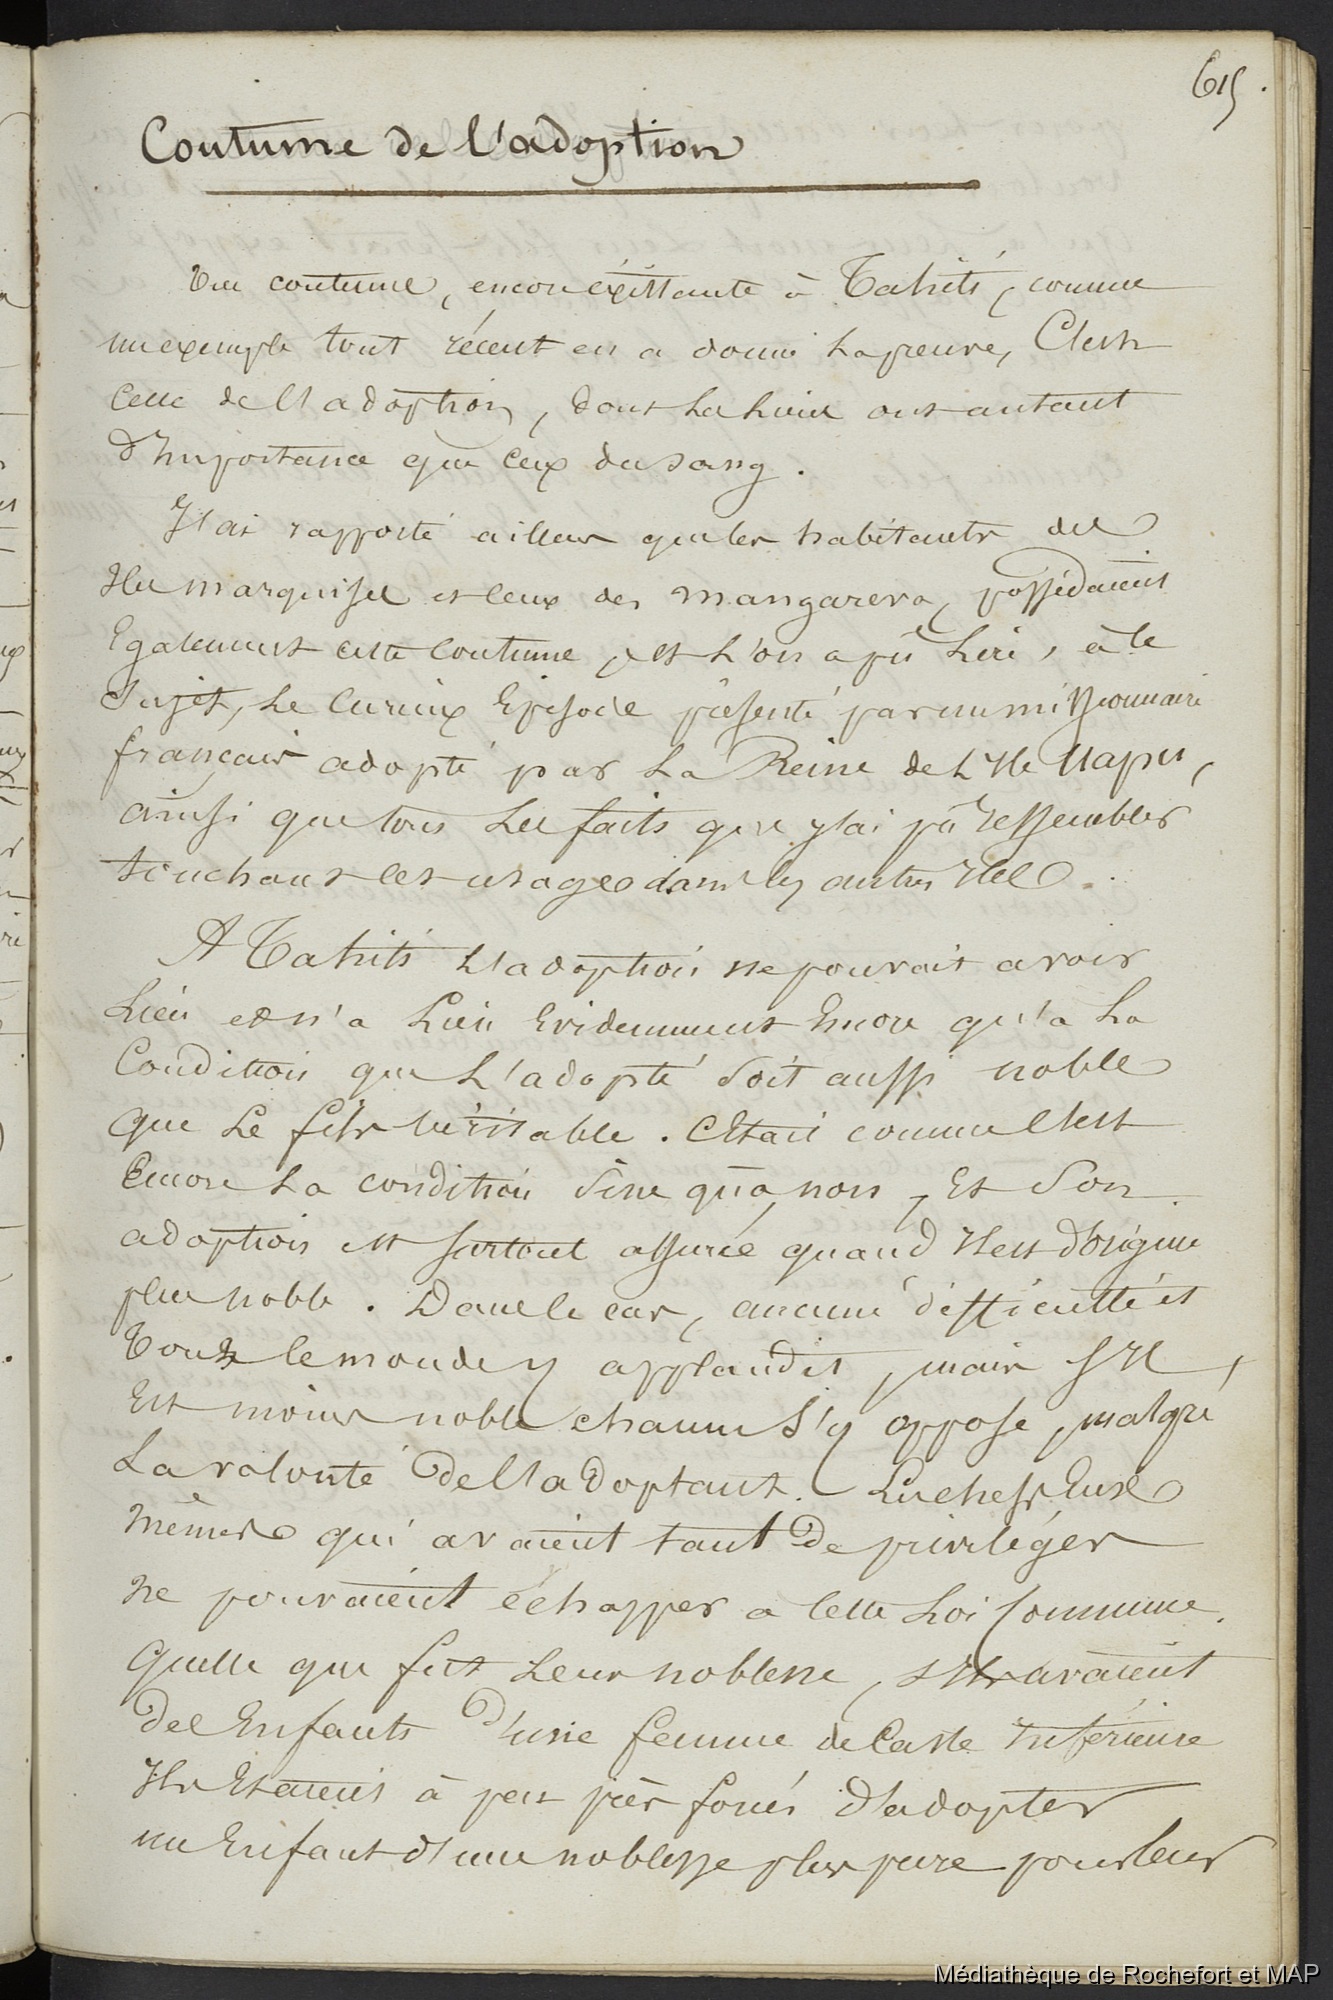 615.
Coutume de l'adoption
Une coutume, encore éxistante à Tahiti, comme
un exemple tout récent en a donné la preuve, C'est
Celle de l'adoption, dont les liens ont autant
d'Importance que Ceux du sang.
J'ai rapporté ailleurs que les habitants des
Iles marquises et ceux des mangareva, possédaient
Egalement cette Coutume, et l'on a pû lire, à ce
Sujet, le Curieux Episode présenté par un missionnaire
français adopté par La Reine de l'Ile Uapu,
ainsi que tous les faits que j'ai pû rassembler
touchant cet usage dans les autres Iles.
A Tahiti l'adoption ne pouvait avoir
Lieu et n'a Lieu Evidemment Encore qu'à La
Condition que L'adopté soit aussi noble
que Le fils véritable. C'était comme C'est
Encore La condition sine quâ non, Et Son
adoption est surtout assurée quand Il est d'origine
plus noble. Dans ce cas, aucune difficulté et
Tout le monde y applaudit, mais s'Il
Est moins noble chacun s'y oppose, malgré
La volonté de l'adoptant. Les chefs Eux
mêmes qui avaient tant de privilèges
ne pouvaient échapper à Cette Loi Commune.
Quelle que fut Leur noblesse, s'Ils avaient
des Enfants d'une femme de Caste Inférieure
Ils Etaient à peu près forcés d'adopter
un Enfant d'une noblesse plus pure pour leur
Médiathèque de Rochefort et MAP